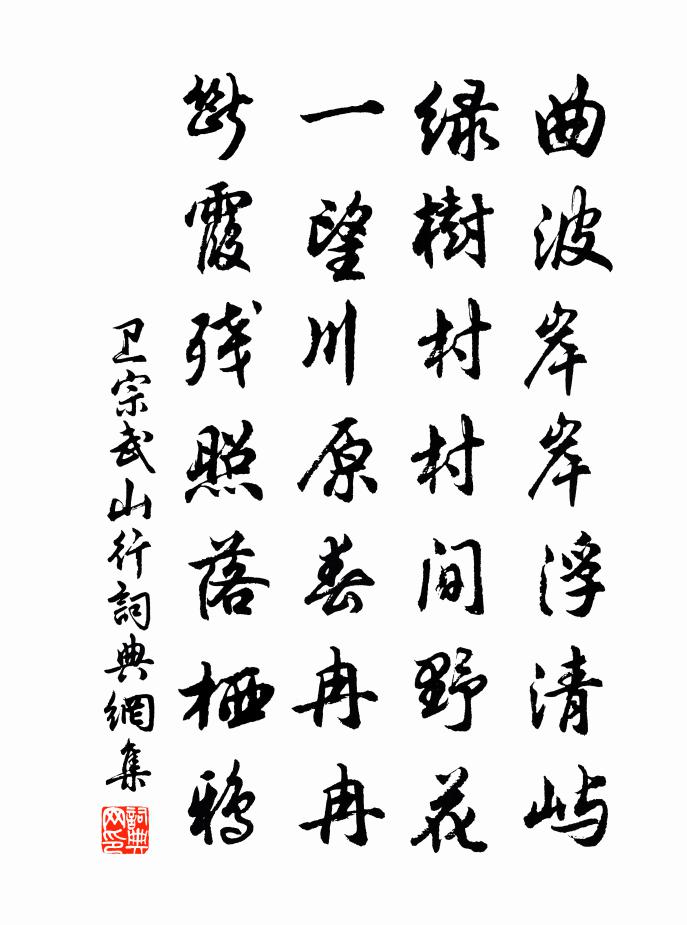 曲波岸岸浮清屿
绿樹村村间野花
一望川原春冉冉
斷霞残照落栖鸦
卫宗武山行詞典網集
詞典网印